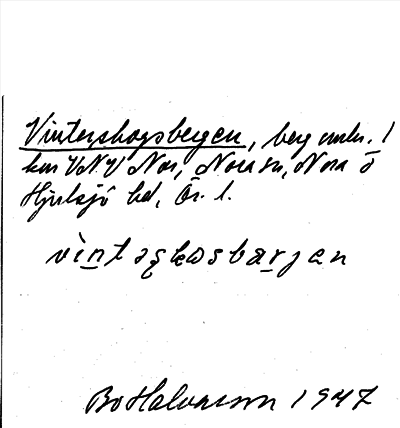 Vinterskogsbergen, berg omkr. 1
km VNV Nor, Nora sn, Nora o
Hjulsjö bd, Ör. l.
vìntəʂkωsbærjen
Bo Halvarsson 1947